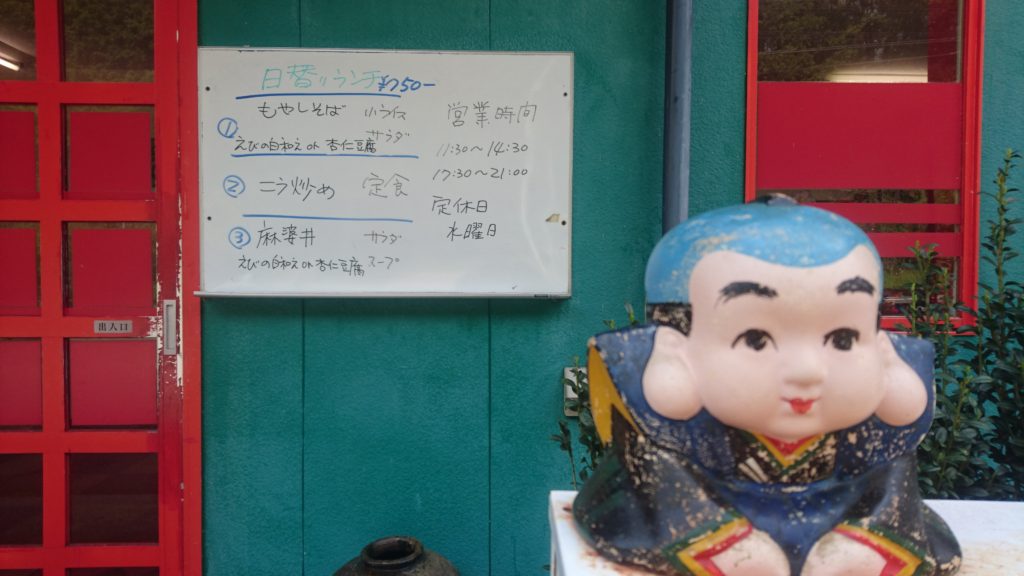 日替りランチ ¥750-
① もやしそば 小ライス
サラダ
えびの白和え or 杏仁豆腐
② ニラ炒め 定食
③ 麻婆丼 サラダ
えびの白和え or 杏仁豆腐 スープ
営業時间
11:30~14:30
17:30~21:00
定休日
水曜日
出入口